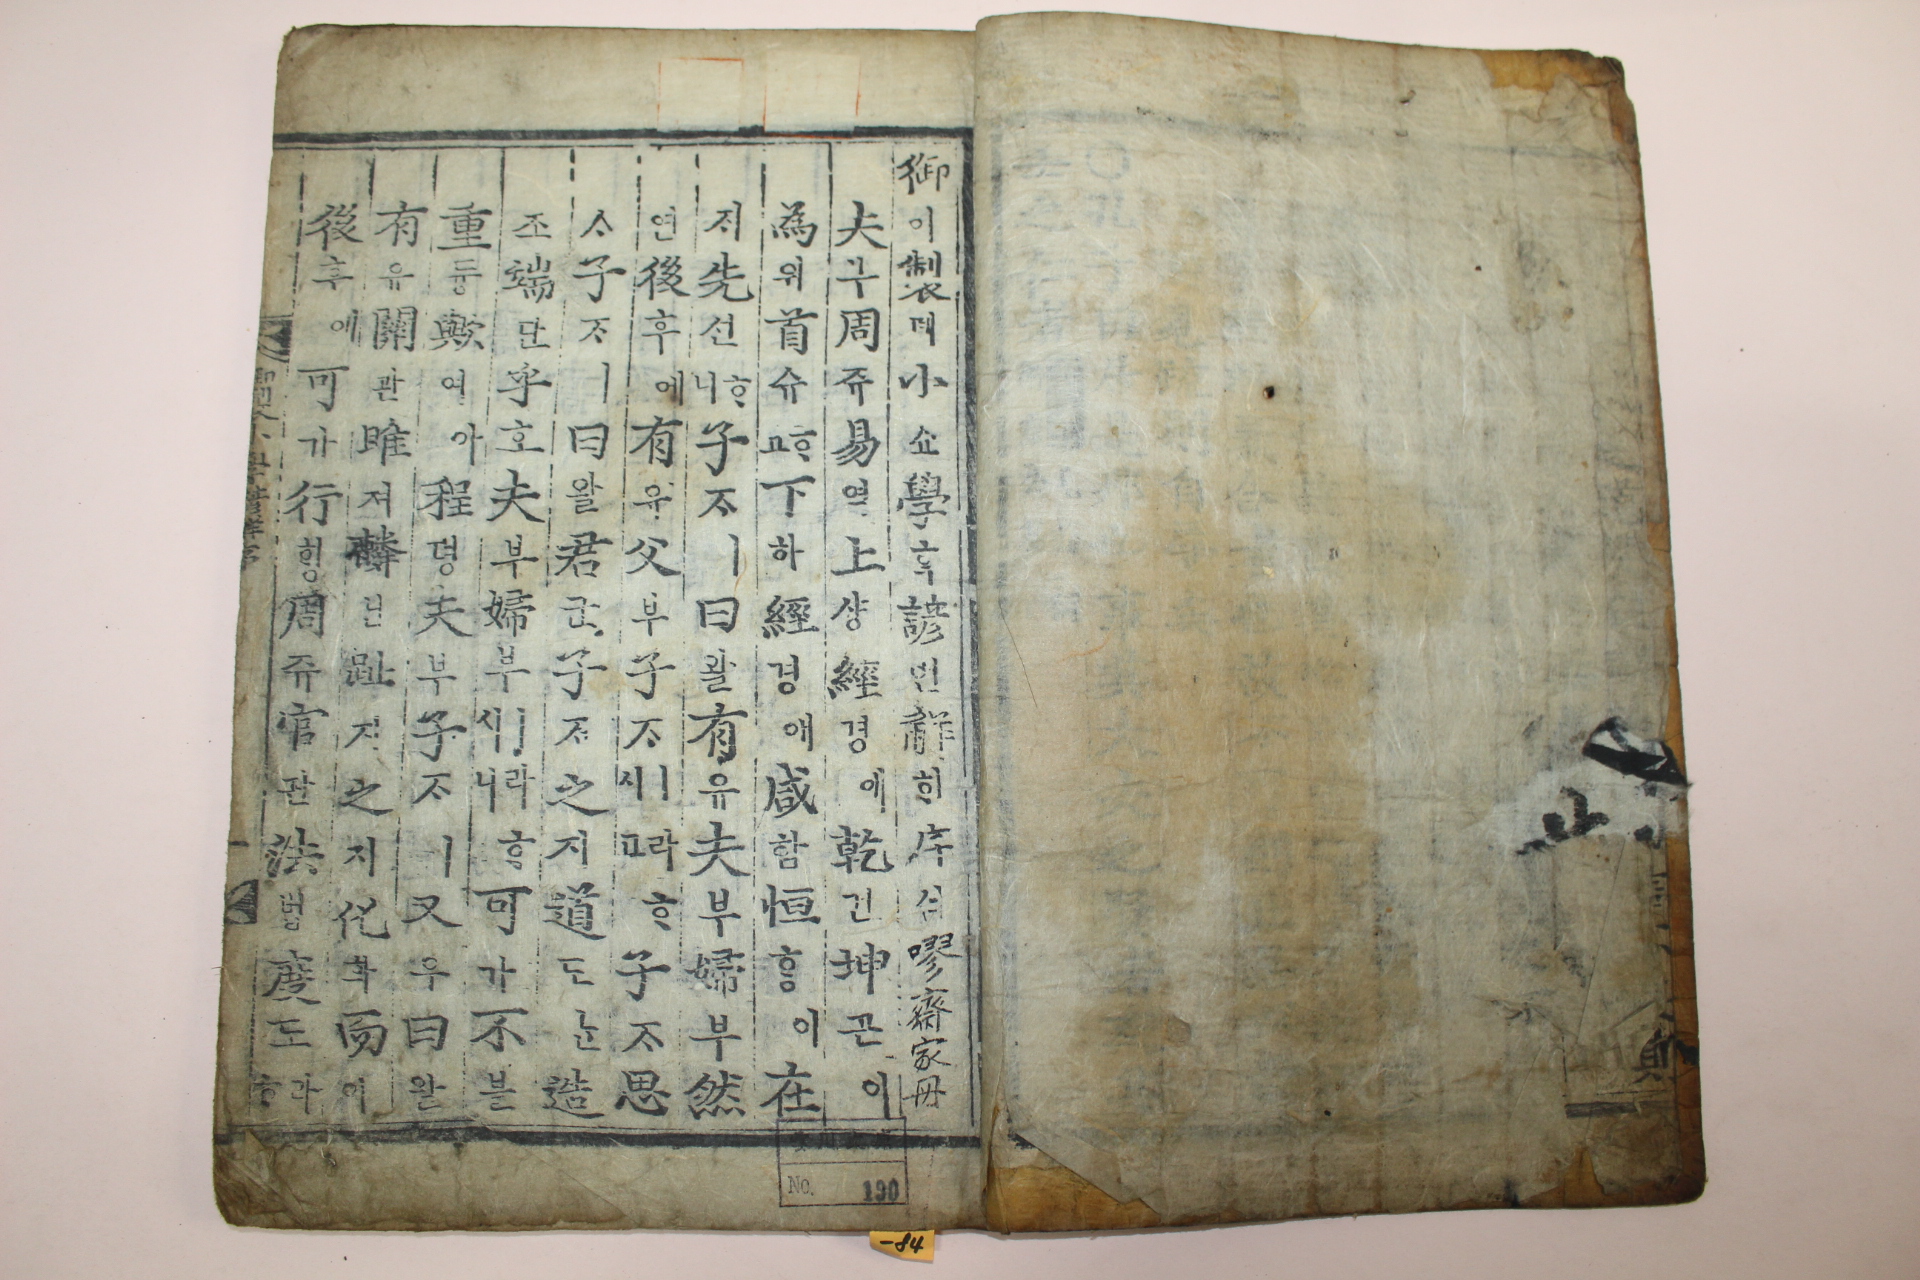 御이製뎨小쇼學ᄒᆞᆨ諺언解ᄒᆡ序셔嘐齋家冊
夫부周쥬易역上샹經경에乾건坤곤이
為위首슈ᄒᆞ고下하經경애咸함恒ᄒᆞᆼ이在
ᄌᆡ先션ᄒᆞ니子ᄌᆞㅣ曰왈有유夫부婦부然
연後후에有유父부子ᄌᆞㅣ라ᄒᆞ시고子ᄌᆞ思
ᄉᆞ子ᄌᆞㅣ曰왈君군子ᄌᆞ之지道도ᄂᆞᆫ造
조端단乎호夫부婦부ㅣ라ᄒᆞ시니可가不블
重듕歟여아程뎡夫부子ᄌᆞㅣ又우曰왈
有유關관雎져麟린趾지之지化화而이
後후에可가行ᄒᆡᆼ周쥬官관法법度도라ᄒᆞ
No. 190
-84